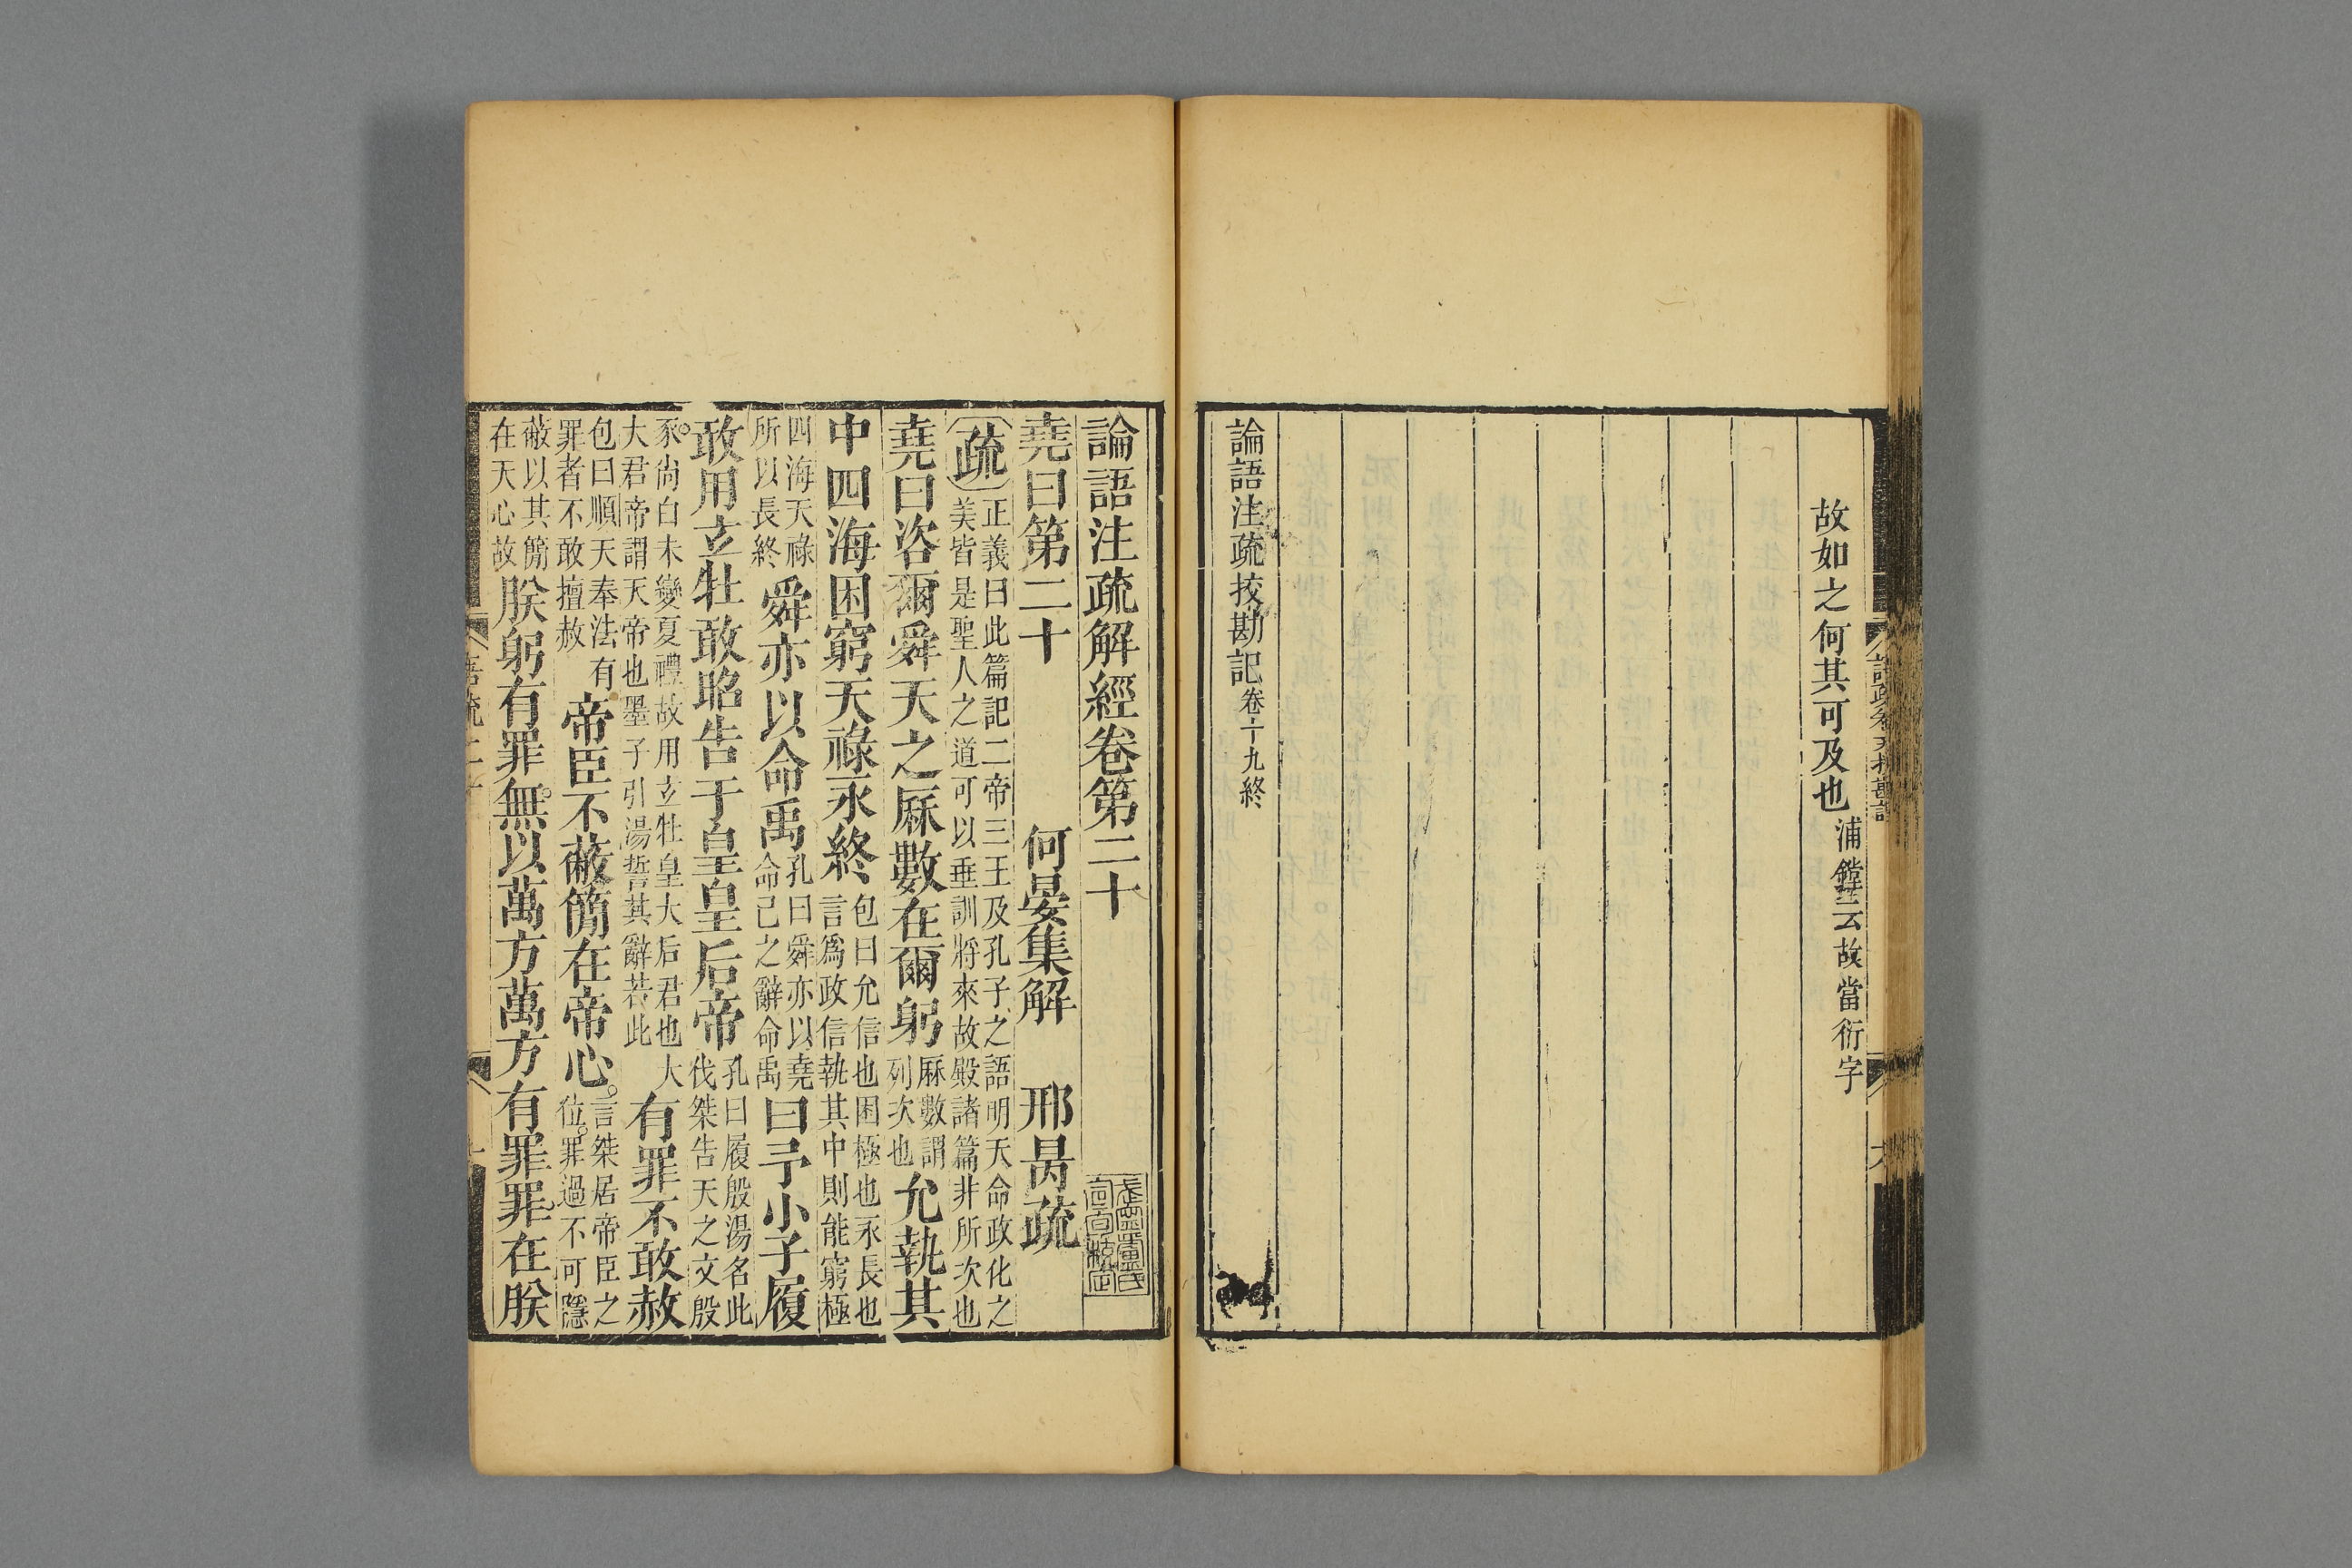 故如之何其可及也浦鏜云故當衍字
論語注疏挍勘記卷十九終
論語注疏解經卷第二十
堯曰第二十　何晏集解　邢昺疏
疏正義曰此篇記二帝三王及孔子之語明天命政化之
美皆是聖人之道可以垂訓將來故殿諸篇非所次也
堯曰咨爾舜天之厤數在爾躬厤數謂列次也允執其
中四海困窮天祿永終包曰允信也困極也永長也言為政信執其中則能窮極
四海天祿所以長終舜亦以命禹孔曰舜亦以堯命己之辭命禹曰予小子履
敢用玄牡敢昭告于皇皇后帝孔曰履殷湯名此伐桀告天之文殷
豕尚白未變夏禮故用玄牡皇大后君也大大君帝謂天帝也墨子引湯誓其辭若此有罪不敢赦
包曰順天奉法有罪者不敢擅赦帝臣不蔽簡在帝心言桀居帝臣之位罪過不可隱
蔽以其簡在天心故朕躬有罪無以萬方萬方有罪罪在朕